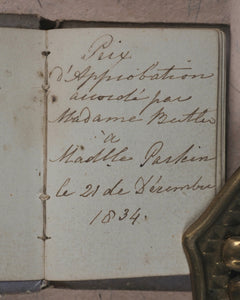 Prix
d'Approbation
accordé par
Madame Butler
à
Madlle Parkin
le 21 de Décembre
1834.